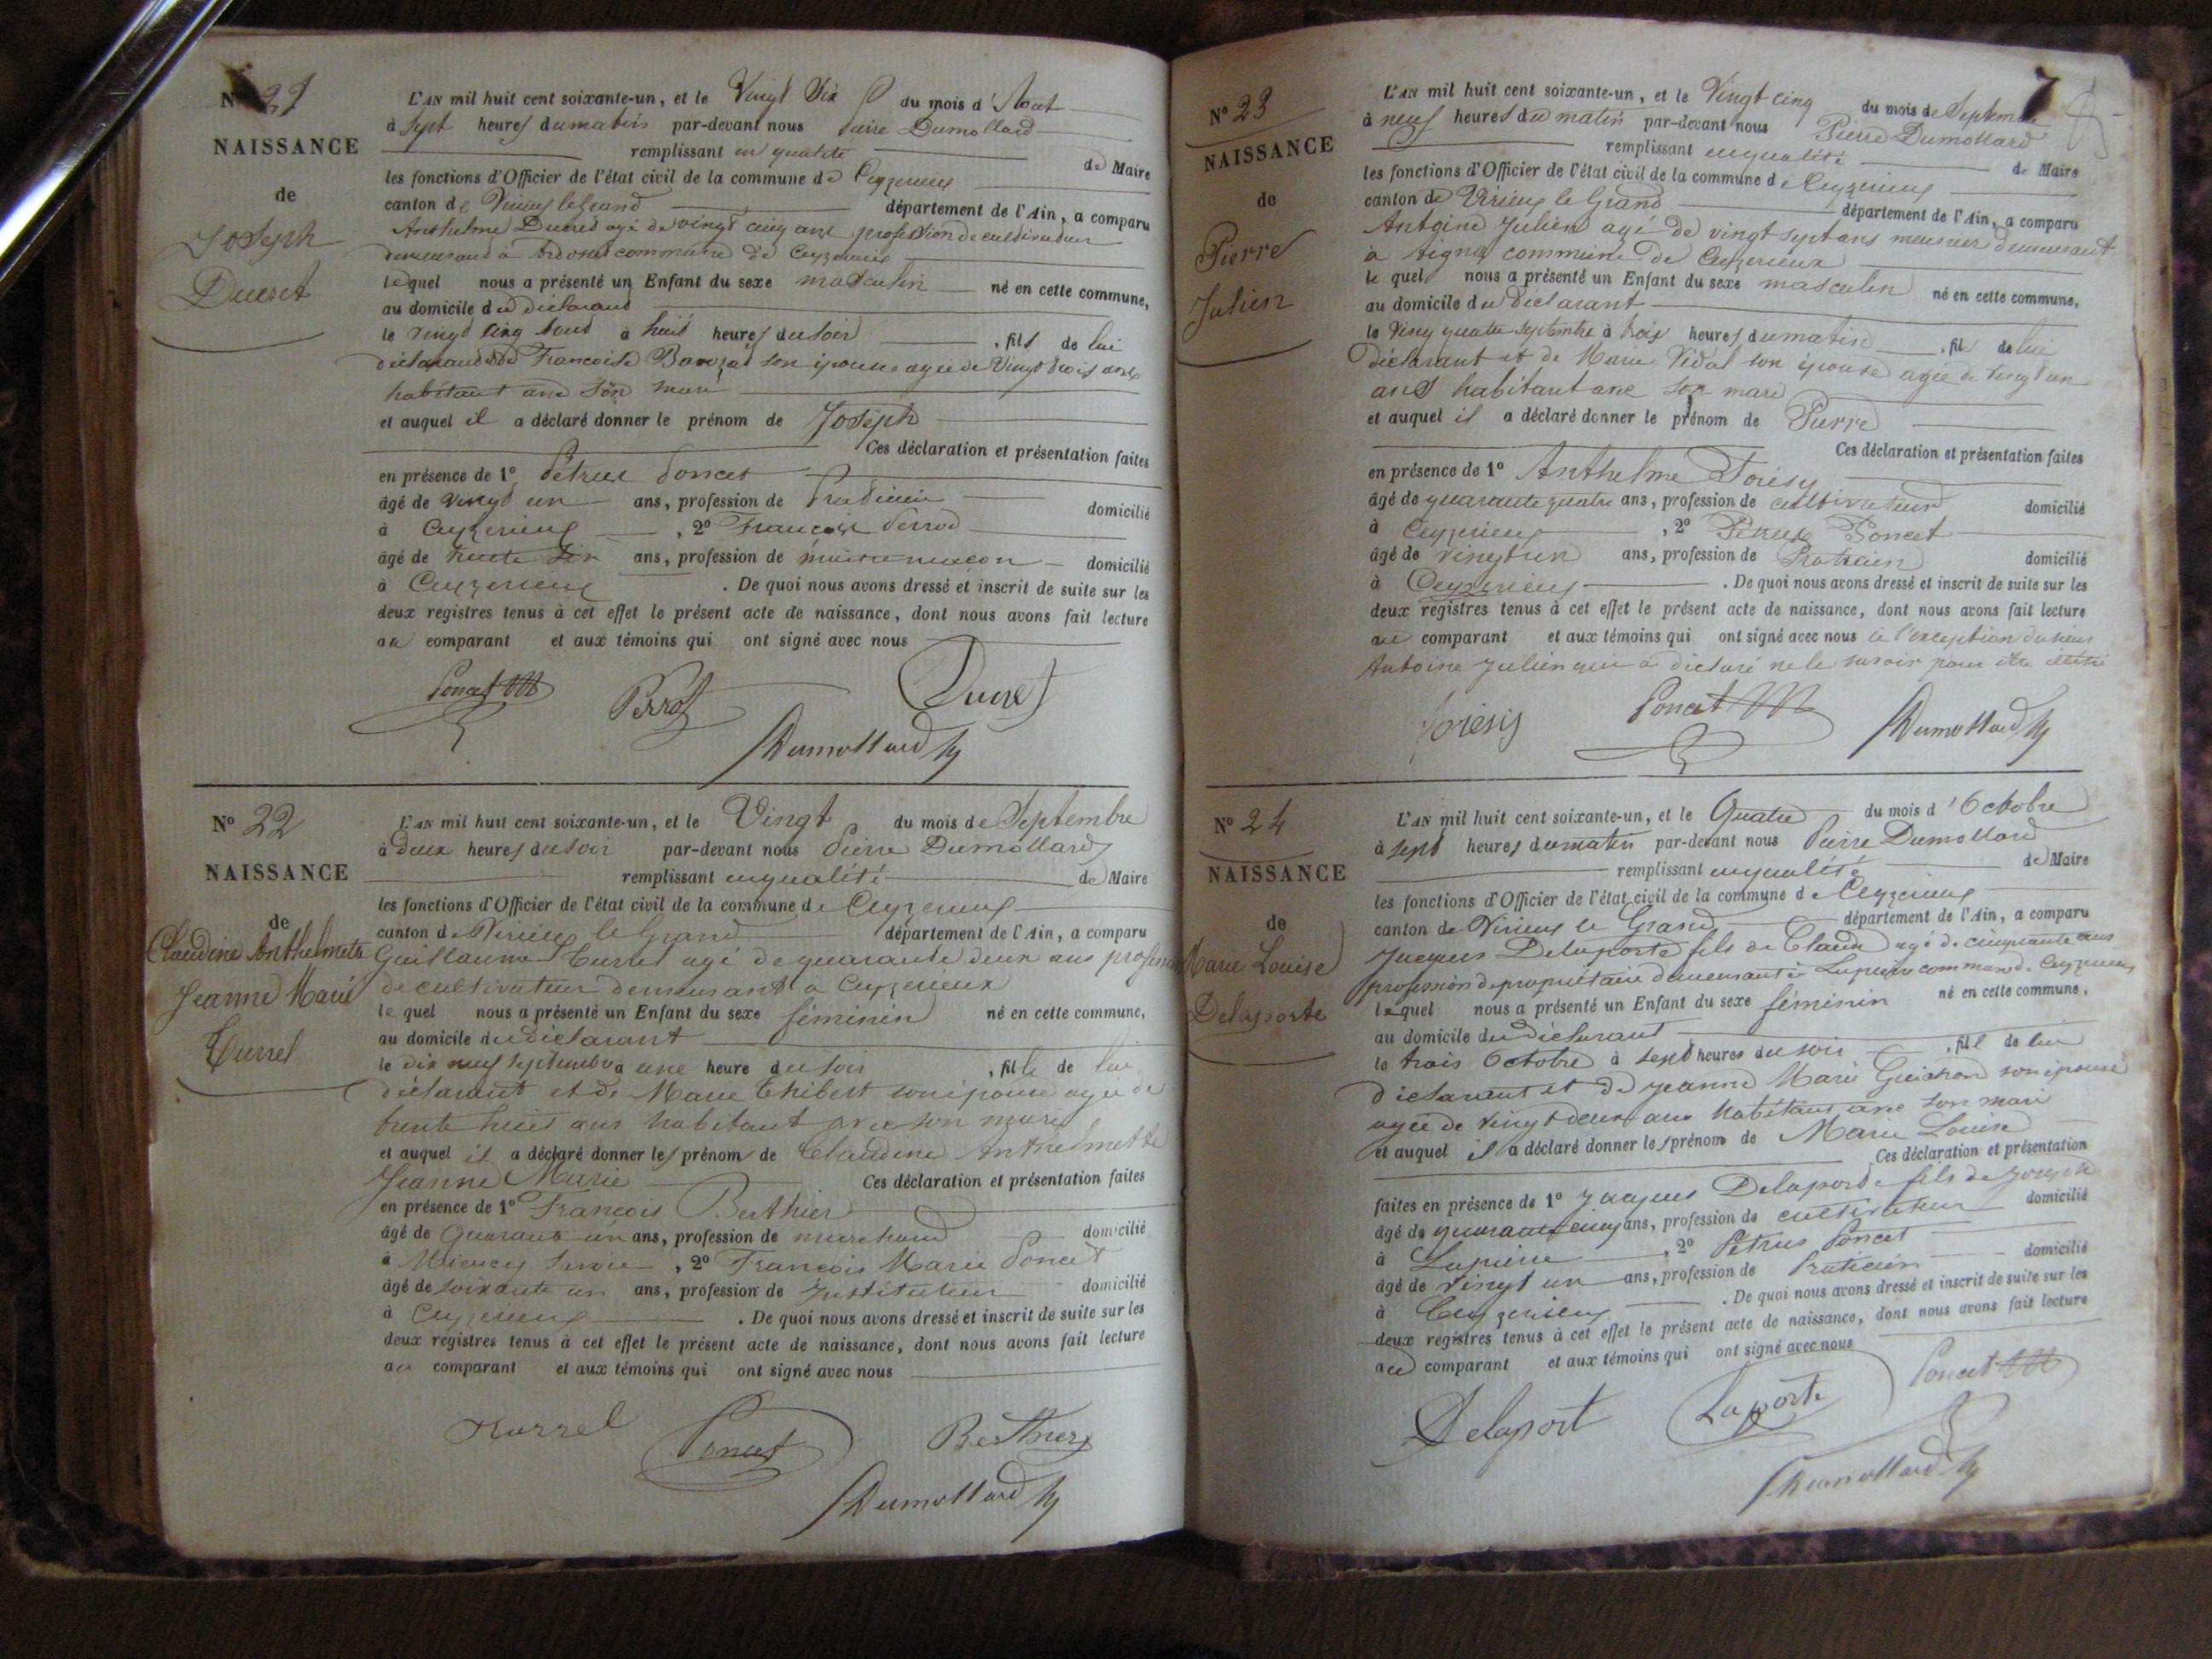 N° 21
NAISSANCE
de
Joseph
Ducret
L'AN mil huit cent soixante-un, et le Vingt Six du mois d'Aout
à Sept heures du matin par-devant nous Pierre Dumollard
remplissant en qualité de Maire
les fonctions d'Officier de l'état civil de la commune de Ceyzerieux
canton de Virieux le Grand département de l'Ain, a comparu
Anthelme Ducret agé de vingt cinq ans profession de cultivateur
demeurant à commune de Ceyzerieux
lequel nous a présenté un Enfant du sexe masculin né en cette commune,
au domicile du déclarant
le vingt cinq Aout à huit heures du soir, fils de lui
déclarant et de Francoise son épouse agée de Vingt trois ans
habitant avec son mari
et auquel il a déclaré donner le prénom de Joseph
Ces déclaration et présentation faites
en présence de 1° Pétrus Poncet
âgé de vingt un ans, profession de Praticien domicilié
à Ceyzerieux, 2° François Perrod
âgé de trente six ans, profession de maitre macon domicilié
à Ceyzerieux. De quoi nous avons dressé et inscrit de suite sur les
deux registres tenus à cet effet le présent acte de naissance, dont nous avons fait lecture
au comparant et aux témoins qui ont signé avec nous
Poncet Perrod Ducret
Dumollard
N° 22
NAISSANCE
de
Claudine Anthelmette
Jeanne Marie
Turrel
L'AN mil huit cent soixante-un, et le Vingt du mois de Septembre
à deux heures du soir par-devant nous Pierre Dumollard
remplissant en qualité de Maire
les fonctions d'Officier de l'état civil de la commune de Ceyzerieux
canton de Virieux le Grand département de l'Ain, a comparu
Guillaume Turrel agé de quarante deux ans profession
de cultivateur demeurant a Ceyzerieux
lequel nous a présenté un Enfant du sexe féminin né en cette commune,
au domicile du déclarant
le dix neuf septembre a une heure du soir, fille de lui
déclarant et de Marie Thibert son épouse agée de
trente huit ans habitant avec son mari
et auquel il a déclaré donner les prénom de Claudine Anthelmette
Jeanne Marie Ces déclaration et présentation faites
en présence de 1° François Berthier
âgé de Quarante un ans, profession de marchand domicilié
à Savoie, 2° François Marie Poncet
âgé de soixante un ans, profession de Instituteur domicilié
à Ceyzerieux. De quoi nous avons dressé et inscrit de suite sur les
deux registres tenus à cet effet le présent acte de naissance, dont nous avons fait lecture
au comparant et aux témoins qui ont signé avec nous
Turrel Poncet Berthier
Dumollard
7
N° 23
NAISSANCE
de
Pierre
Julien
L'AN mil huit cent soixante-un, et le Vingt cinq du mois de Septembre
à neuf heures du matin par-devant nous Pierre Dumollard
remplissant en qualité de Maire
les fonctions d'Officier de l'état civil de la commune de Ceyzerieux
canton de Virieux le Grand département de l'Ain, a comparu
Antoine Julien agé de vingt sept ans meunier demeurant
à commune de Ceyzerieux
lequel nous a présenté un Enfant du sexe masculin né en cette commune,
au domicile du déclarant
le Vingt quatre septembre à trois heures du matin, fils de lui
déclarant et de Marie Vidal son épouse agée de vingt un
ans habitant avec son mari
et auquel il a déclaré donner le prénom de Pierre
Ces déclaration et présentation faites
en présence de 1° Anthelme
âgé de quarante quatre ans, profession de cultivateur domicilié
à Ceyzerieux, 2° Pétrus Poncet
âgé de vingt un ans, profession de Praticien domicilié
à Ceyzerieux. De quoi nous avons dressé et inscrit de suite sur les
deux registres tenus à cet effet le présent acte de naissance, dont nous avons fait lecture
au comparant et aux témoins qui ont signé avec nous à l'exception du sieur
Antoine Julien qui a déclaré ne le savoir pour être illitré
Poncet Dumollard
N° 24
NAISSANCE
de
Marie Louise
Delaporte
L'AN mil huit cent soixante-un, et le Quatre du mois d'Octobre
à sept heures du matin par-devant nous Pierre Dumollard
remplissant en qualité de Maire
les fonctions d'Officier de l'état civil de la commune de Ceyzerieux
canton de Virieux le Grand département de l'Ain, a comparu
Jacques Delaporte fils de Claude agé de cinquante ans
profession de propriétaire demeurant à Lapierre commune de Ceyzerieux
lequel nous a présenté un Enfant du sexe féminin né en cette commune,
au domicile du déclarant
le trois Octobre à sept heures du soir, fille de lui
déclarant et de Jeanne Marie son épouse
agée de vingt deux ans habitant avec son mari
et auquel il a déclaré donner les prénom de Marie Louise
Ces déclaration et présentation
faites en présence de 1° Jacques Delaporte fils de Joseph
âgé de quarante cinq ans, profession de cultivateur domicilié
à Lapierre, 2° Pétrus Poncet
âgé de vingt un ans, profession de Praticien domicilié
à Ceyzerieux. De quoi nous avons dressé et inscrit de suite sur les
deux registres tenus à cet effet le présent acte de naissance, dont nous avons fait lecture
au comparant et aux témoins qui ont signé avec nous
Delaport Laporte Poncet
Dumollard